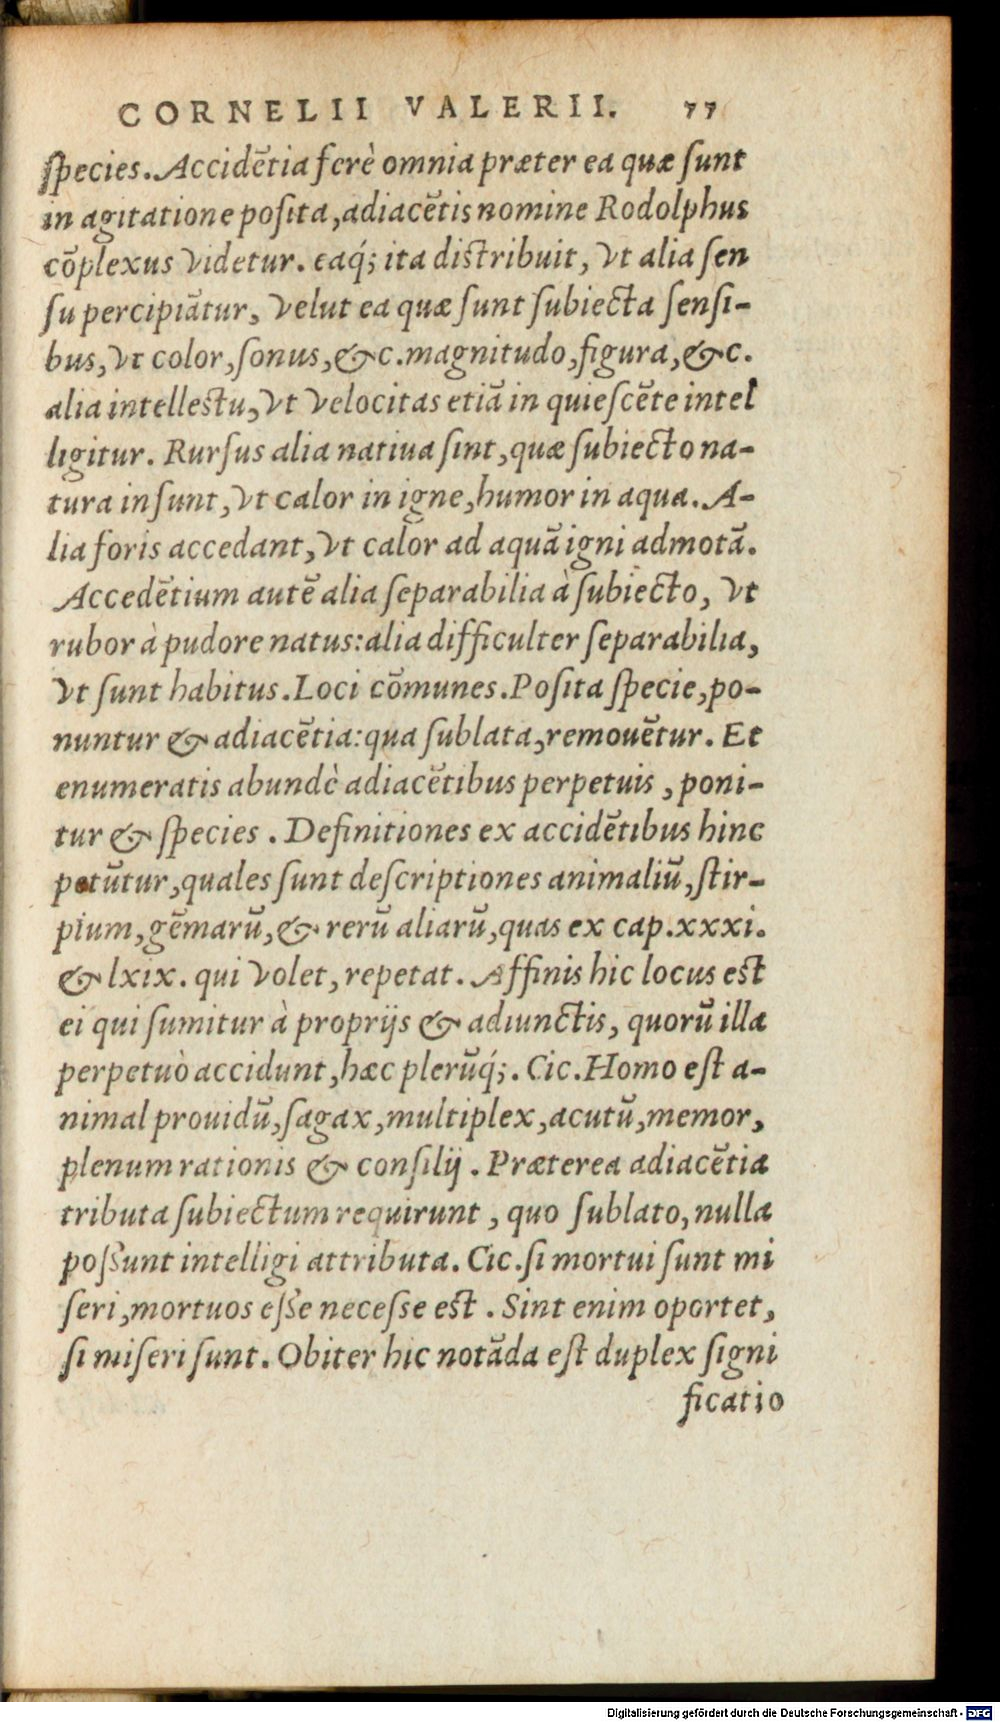 CORNELII VALERII. 77
species. Accidẽtia ferè omnia præter ea quæ sunt
in agitatione posita, adiacẽtis nomine Rodolphus
cõplexus videtur. eaq́; ita distribuit, vt alia sen
su percipiãtur, velut ea quæ sunt subiecta sensi-
bus, vt color, sonus, &c. magnitudo, figura, &c.
alia intellectu, vt velocitas etiã in quiescẽte intel
ligitur. Rursus alia natiua sint, quæ subiecto na-
tura insunt, vt calor in igne, humor in aqua. A-
lia foris accedant, vt calor ad aquã igni admotã.
Accedẽtium autẽ alia separabilia à subiecto, vt
rubor à pudore natus: alia difficulter separabilia,
vt sunt habitus. Loci cõmunes. Posita specie, po-
nuntur & adiacẽtia: qua sublata, remouẽtur. Et
enumeratis abundè adiacẽtibus perpetuis, poni-
tur & species. Definitiones ex accidẽtibus hinc
petũtur, quales sunt descriptiones animaliũ, stir-
pium, gẽmarũ, & rerũ aliarũ, quas ex cap. xxxi.
& lxix. qui volet, repetat. Affinis hic locus est
ei qui sumitur à proprijs & adiunctis, quorũ illa
perpetuò accidunt, hæc plerũq́;. Cic. Homo est a-
nimal prouidũ, sagax, multiplex, acutũ, memor,
plenum rationis & consilij. Præterea adiacẽtia
tributa subiectum requirunt, quo sublato, nulla
possunt intelligi attributa. Cic. si mortui sunt mi
seri, mortuos esse necesse est. Sint enim oportet,
si miseri sunt. Obiter hic notãda est duplex signi
ficatio
Digitalisierung gefördert durch die Deutsche Forschungsgemeinschaft - DFG